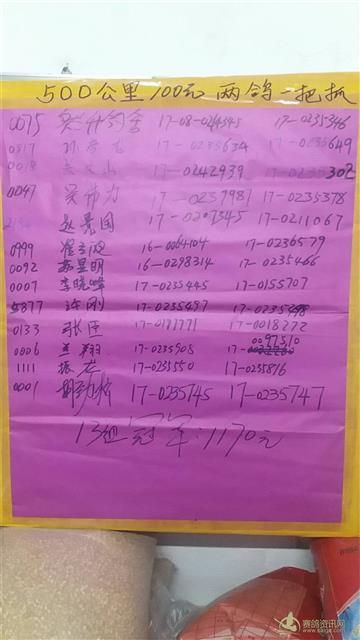 500公里100元 两鸽一把抓
0075 17-08-0244345 17-0235346
0517 17-0235634 17-0235649
0018 17-0242939 302
0047 吴伟力 17-0237981 17-0235378
国 17-0207345 17-0211067
0999 16-0064104 17-0236579
0092 苏星明 16-0298314 17-0235466
0007 李晓峰 17-0235445 17-0155707
5877 许刚 17-0235497 17-0235498
0133 张臣 17-0177771 17-0018272
0097310
0006 兰翔 17-0235508 17-
1111 17-0235550 17-0235876
0001 17-0235745 17-0235747
13组冠军:1170元
赛鸽资讯网
www.saige.com